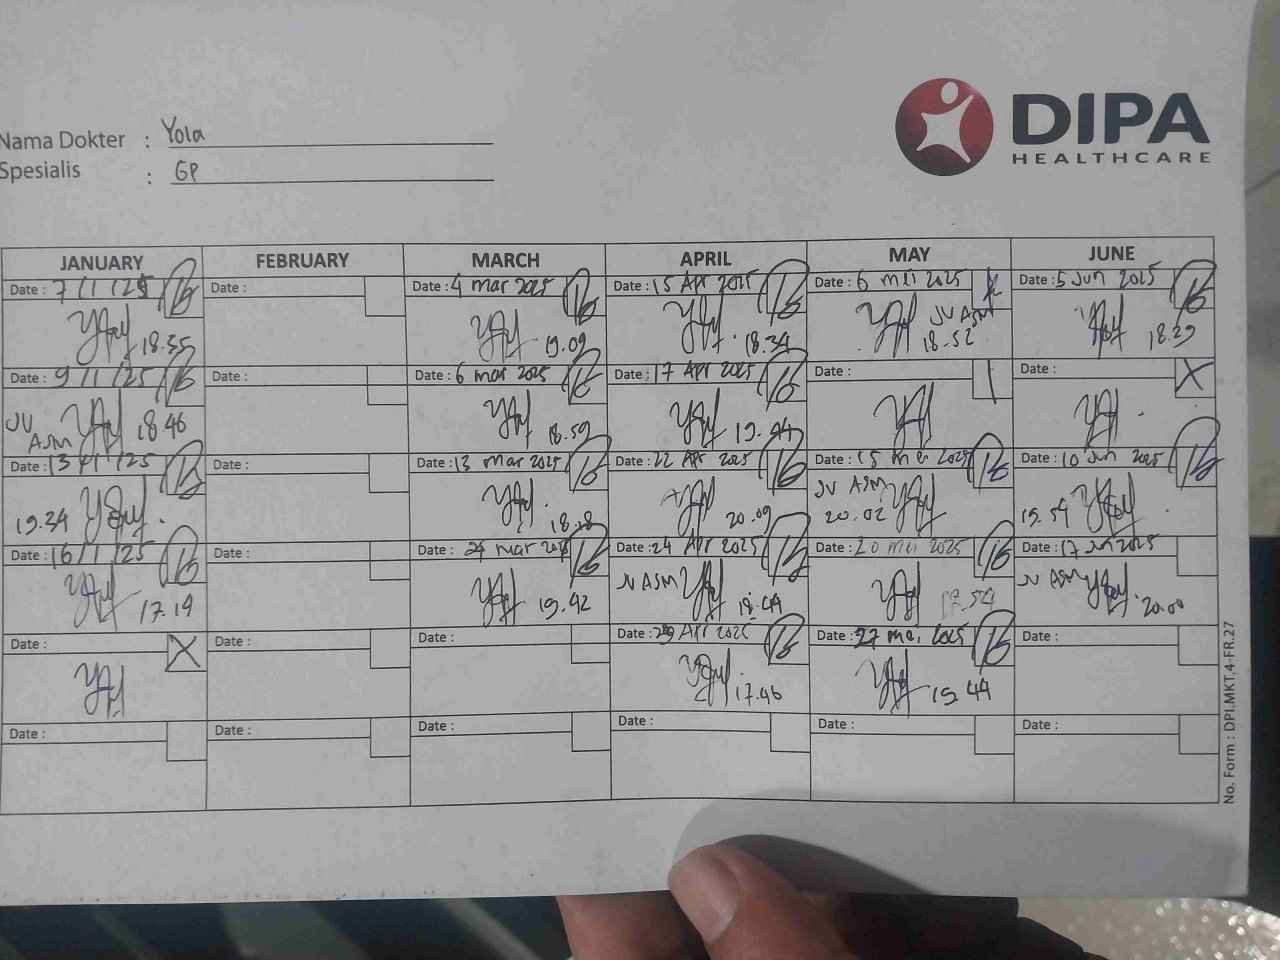 DIPA
HEALTHCARE
Nama Dokter : Yola
Spesialis : GP
JANUARY FEBRUARY MARCH APRIL MAY JUNE
Date : 7/1/25 Date : Date : 4 mar 2025 Date : 15 Apr 2025 Date : 6 mei 2025 Date : 5 Jun 2025
18.35 19.09 18.34 JV ASM 18-52 18.29
Date : 9/1/25 Date : Date : 6 mar 2025 Date : 17 Apr 2025 Date : Date :
JV ASM 18.46 18.59 19.44
Date : 13/1/25 Date : Date : 13 mar 2025 Date : 22 Apr 2025 Date : 15 mei 2025 Date : 10 Jun 2025
19.34 20.09 JV ASM 20.02
Date : 16/1/25 Date : Date : mar Date : 24 Apr 2025 Date : 20 mei 2025 Date : 17 Jun 2025
17.19 19.42 JV ASM 18.44 JV ASM 20.00
Date : Date : Date : Date : 29 Apr 2025 Date : 27 mei 2025 Date :
17.46 19.44
Date : Date : Date : Date : Date : Date :
No. Form : DPI.MKT.4-FR.27